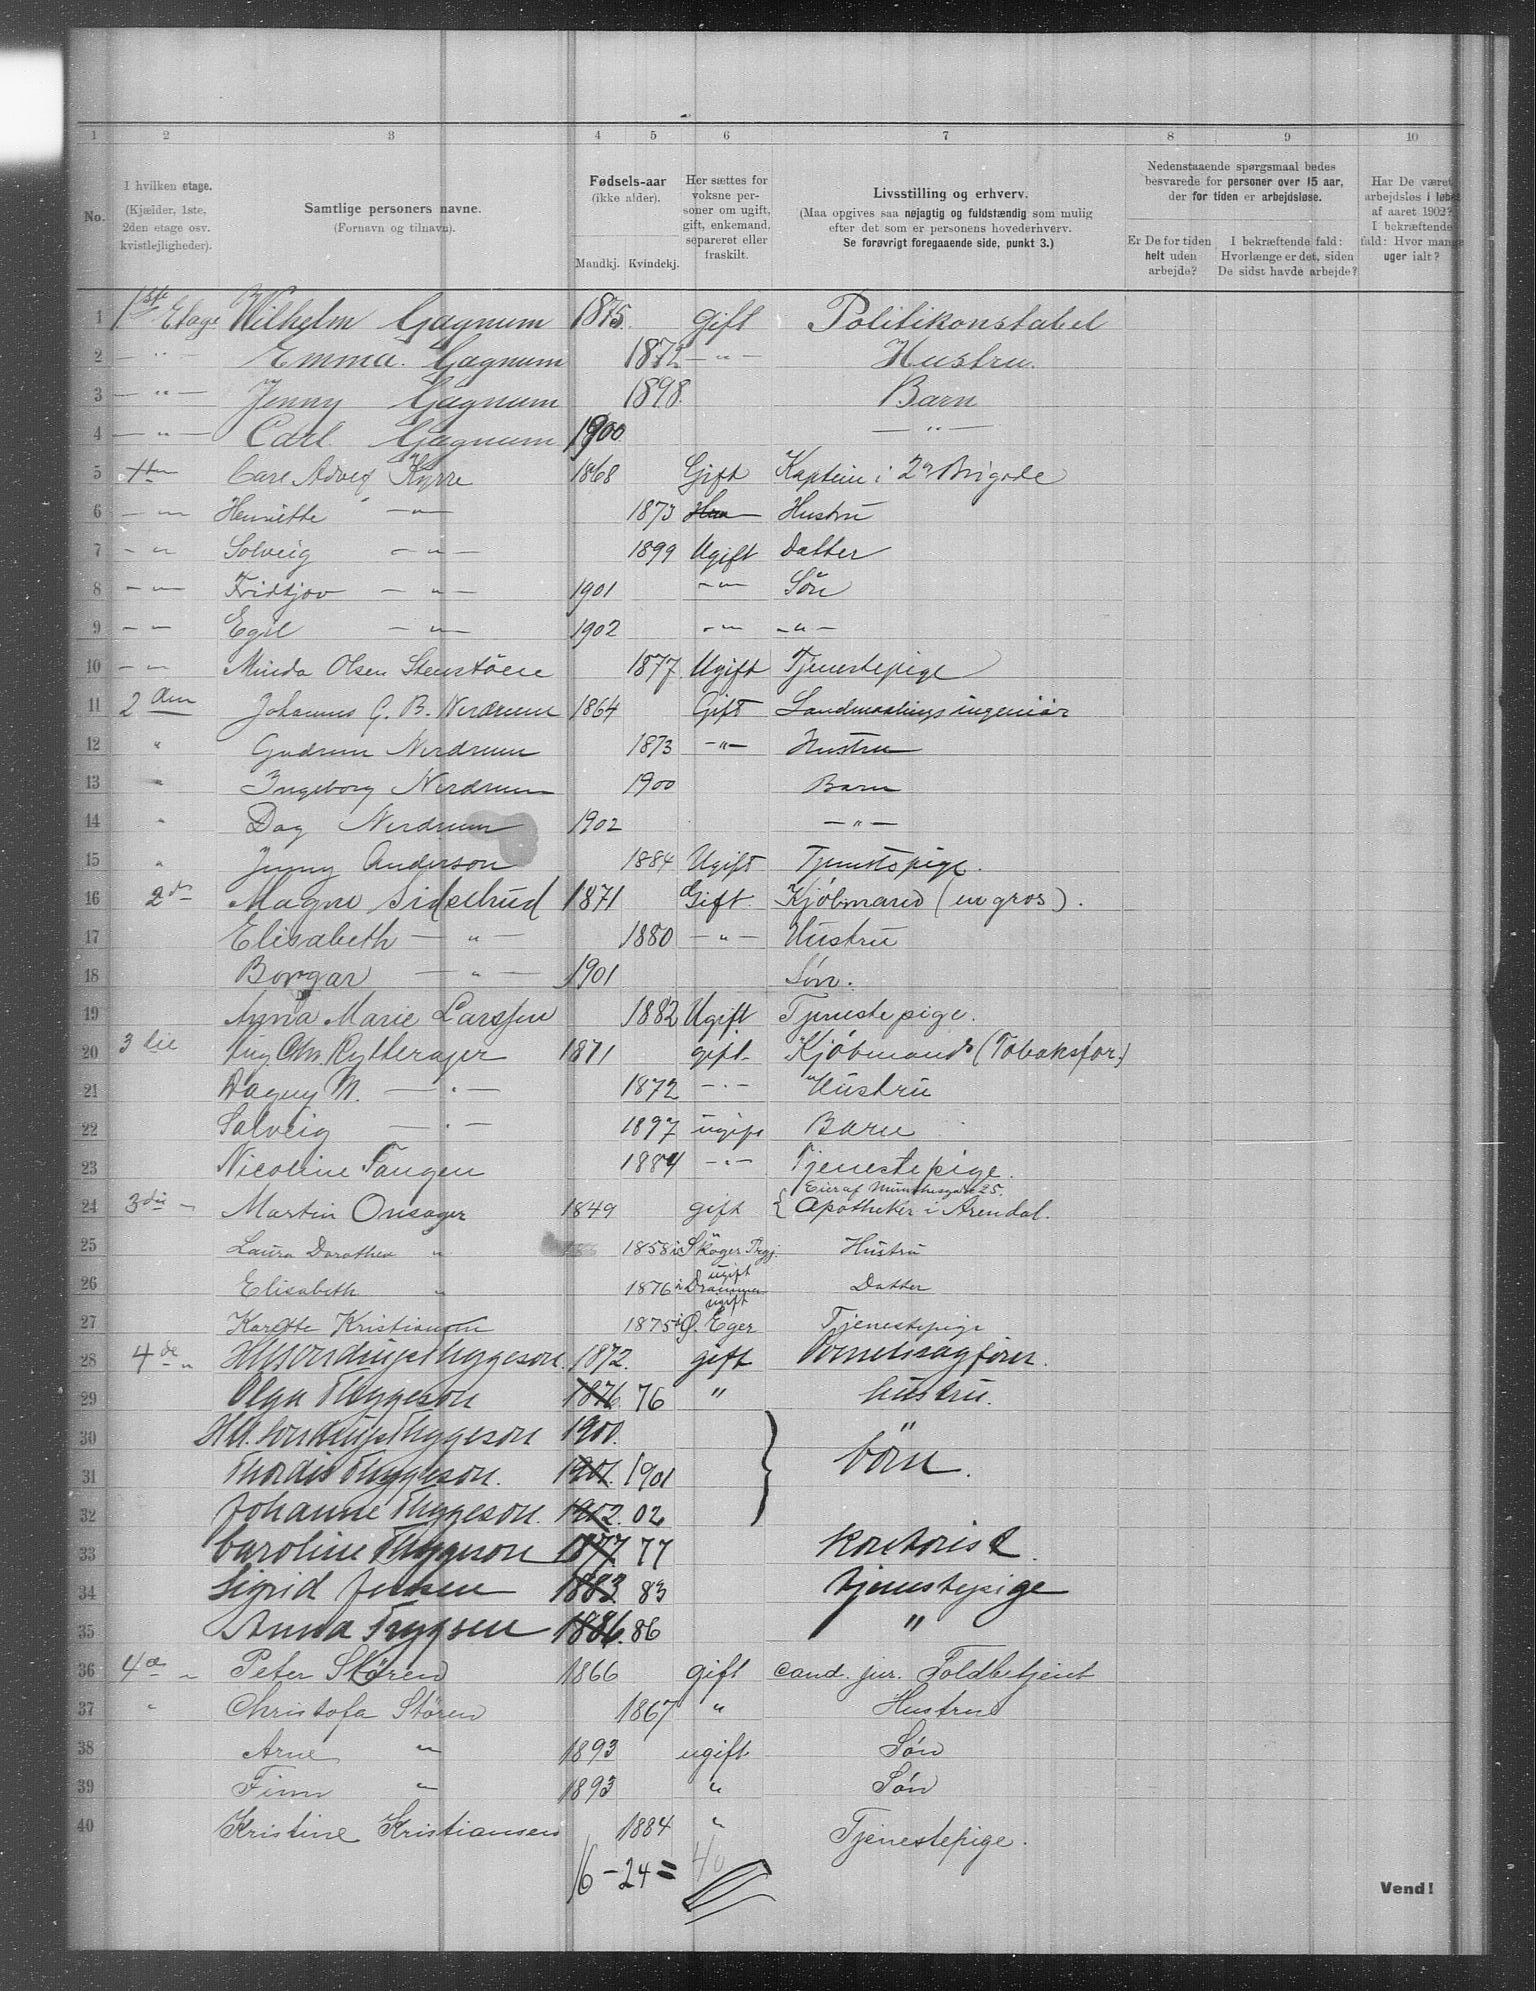 1 2 3 4 5 6 7 8 9 10
No.
I hvilken etage.
(Kjælder, 1ste,
2den etage osv.
kvistlejligheder).
Samtlige personers navne.
(Fornavn og tilnavn).
Fødsels-aar
(ikke alder).
Mandkj. Kvindekj.
Her sættes for
voksne per-
soner om ugift,
gift, enkemand,
separeret eller
fraskilt.
Livsstilling og erhverv.
(Maa opgives saa nøjagtig og fuldstændig som mulig
efter det som er personens hovederhverv.
Se forøvrigt foregaaende side, punkt 3.)
Nedenstaaende spørgsmaal bedes
besvarede for personer over 15 aar,
der for tiden er arbejdsløse.
Er De for tiden
helt uden
arbejde?
I bekræftende fald:
Hvorlænge er det, siden
De sidst havde arbejde?
Har De været
arbejdsløs i løbet
af aaret 1902?
I bekræftende
fald: Hvor mange
uger ialt?
1 1ste Etage Wilhelm Gagnum 1875. Gift Politikonstabel
2 — " — Emma. Gagnum 1872 — " — Hustru.
3 — " — Jenny Gagnum 1898. Barn
4 — " — Carl Gagnum 1900 — " —
5 Carl Kyrre 1868 Gift Kaptein i 2n Brigade
6 — " — Henriette — " — 1873 Hustru
7 — " — Solveig — " — 1899 Ugift Datter
8 — " — Fridtjov — " — 1901 — " — Sön
9 — " — Egil — " — 1902 — " — — " —
10 — " — Minda Olsen 1877. Ugift Tjenestepige
11 2den Johannes G. B. Nerdrum 1864 Gift Landmaalingsingeniör
12 " Gudrun Nerdrum 1873 — " — Hustru
13 " Ingeborg Nerdrum 1900 Barn
14 " Dag Nerdrum 1902 — " —
15 " Jenny Anderson 1884 Ugift Tjenestepige.
16 2d Magne Sidselrud 1871 Gift. Kjöbmand (en gros).
17 Elisabeth — " — 1880 — " — Hustru
18 Borgar — " — 1901 Søn.
19 Anna Marie Larssen 1882 Ugift Tjenestepige.
20 3die Aug. Chr. Rytterager 1871 gift. Kjöbmand (Tobaksfor.)
21 Dagny M. — " — 1872 — " — Hustru
22 Solveig — " — 1897 ugift Barn
23 Nicoline Tangen 1884 — " — Tjenestepige.
Eier af Munthesgade 25.
24 3die — Martin Onsager 1849 gift { Apotheker i Arendal.
25 Laura Dorothea " 1858 i Skoger Prgj. Hustru
26 Elisabeth " 1876 i ugift Drammen Datter
27 Karette Kristiansen 1875 i ugift Ø. Eger Tjenestepige
28 4de " Thygeson. 1872. gift
29 Olga Thygeson 1876 76 " hustru.
30 Thygeson 1900. "
31 Thordis Thygeson. 1901. 1901 } børn.
32 Johanne Thygeson. 1902. 02
33 Caroline Thygeson 1877. 77 Kontorist.
34 Sigrid Jensen 1883 83 tjenestepige
35 Anna 1886. 86 "
36 4de " Peter Støren 1866 gift cand. jur. Toldbetjent
37 " Christofa Støren 1867 " Hustru
38 Arne " 1893 ugift Søn
39 Finn " 1893 " Søn
40 Kristine Kristiansen 1884 " Tjenestepige.
16 – 24 = 40
Vend!